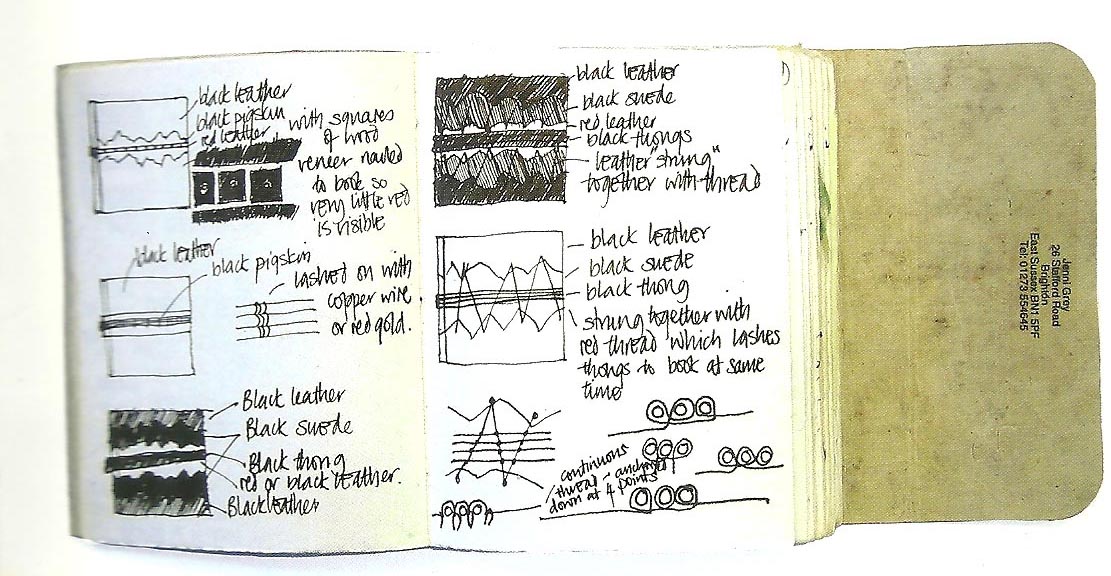 black leather
black pigskin
red leather
with squares
of wood
veneer nailed
to book so
very little red
is visible
black leather
black pigskin
lashed on with
copper wire
or red gold.
Black leather
Black suede
Black thong
red or black leather.
Black leather
black leather
black suede
red leather
black thongs
leather "strung"
together with thread
black leather
black suede
black thong
strung together with
red thread which lashes
thongs to book at same
time
continuous
thread - anchored
down at 4 points
Jenni Grey
26 Stafford Road
Brighton
East Sussex BN1 5PF
Tel: 01273 554645